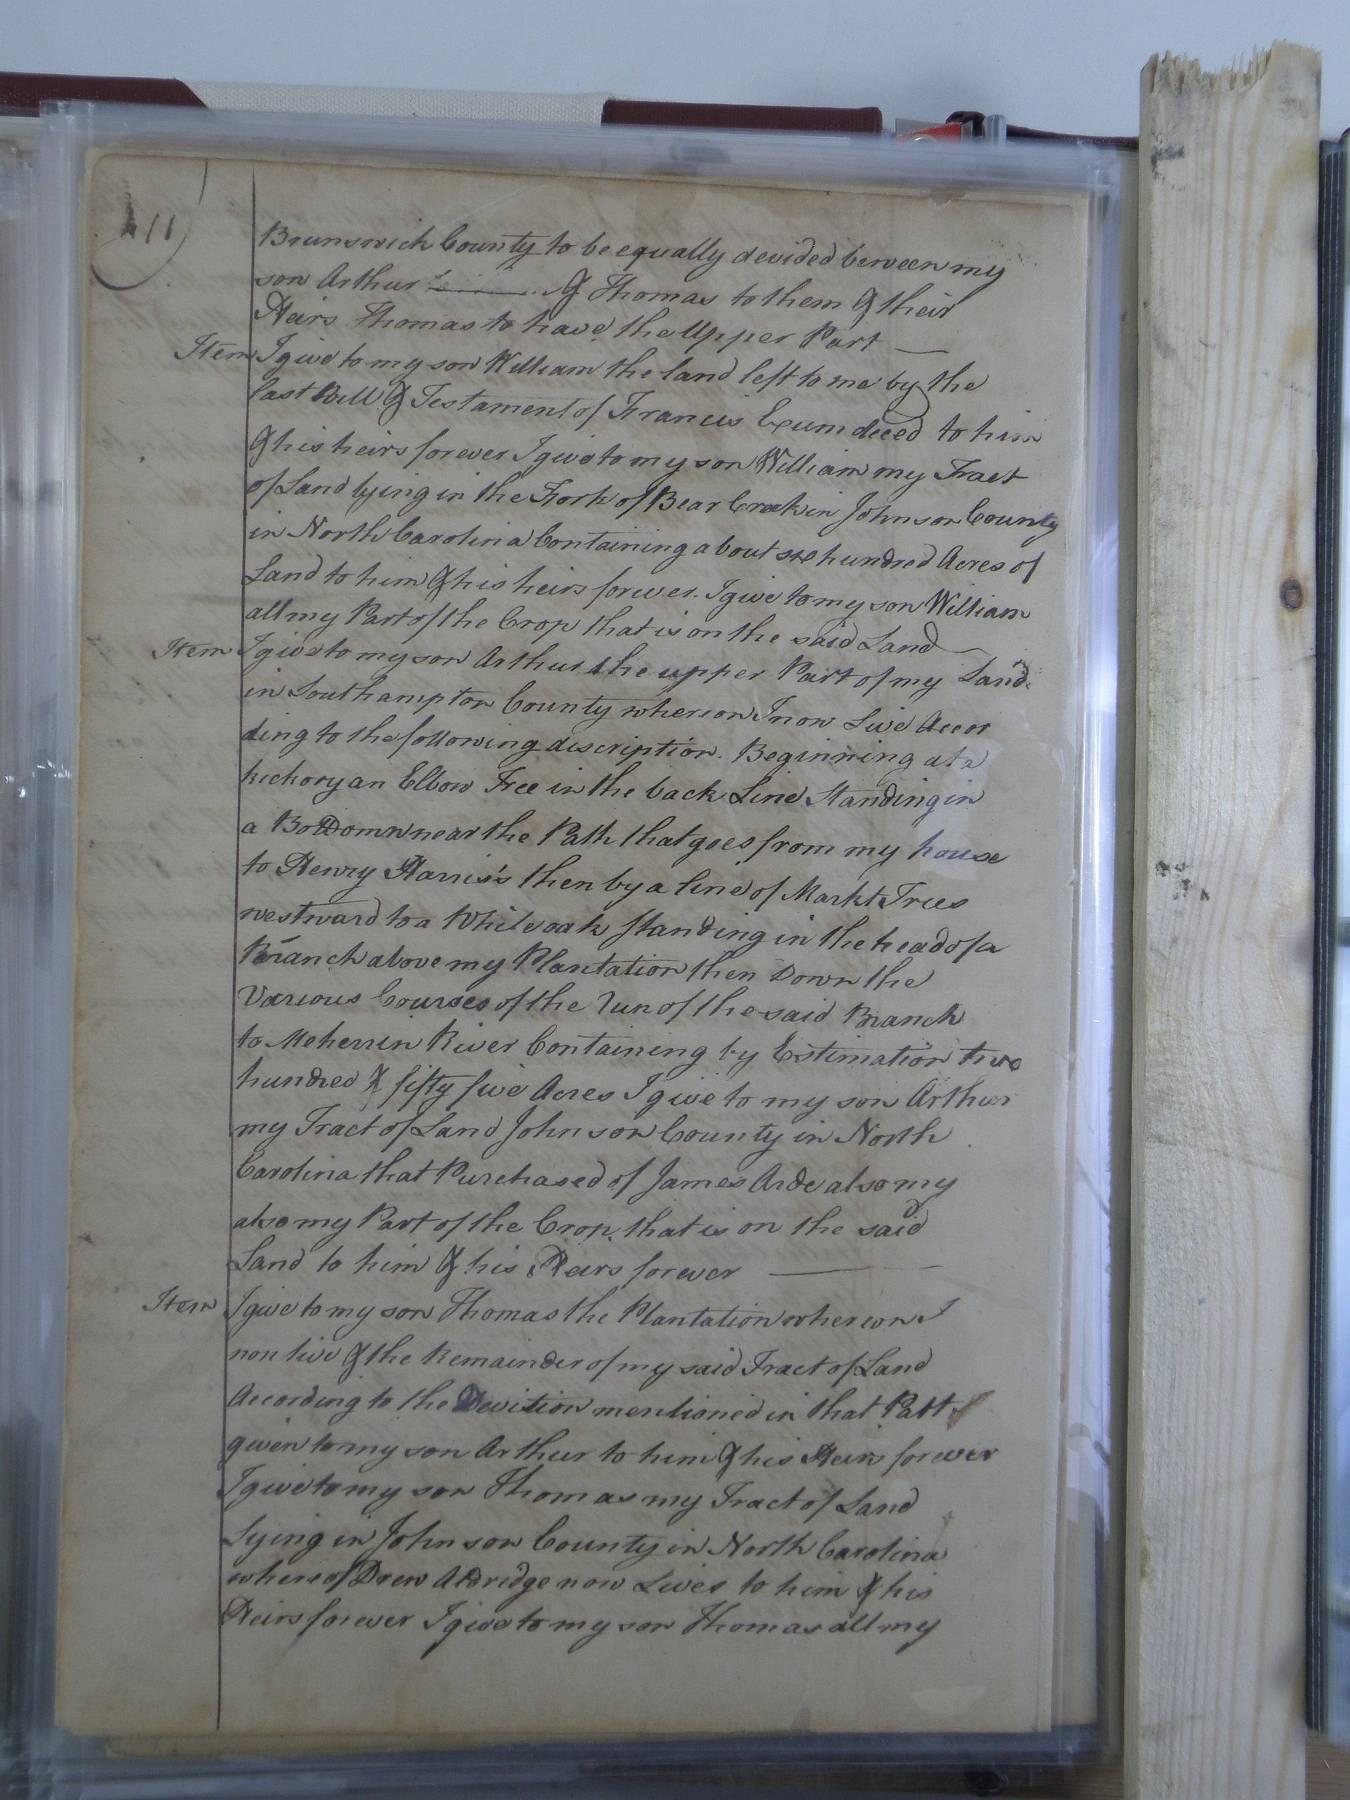 11
Brunswick County to be equally devided beween my
son Arthur & Thomas to them & their
Heirs Thomas to have the Upper Part
Item I give to my son William the land left to me by the
last Will & Testament of Francis Exum deced to him
& his heirs forever I give to my son William my Tract
of Land lying in the Fork of Bear Creek in Johnson County
in North Carolina Containing about six hundred Acres of
Land to him & his heirs forever. I give to my son William
all my Part of the Crop that is on the said Land
Item I give to my son Arthur the upper Part of my Land
in Southampton County whereon I now Live Accor
ding to the following discription. Beginning at a
hickory an Elbow Tree in the back Line Standing in
a near the Path that goes from my house
to Henry Harris's then by a line of Markt Trees
westward to a White oak standing in the head of a
Branch above my Plantation then Down the
Various Courses of the Run of the said Branch
to Meherrin River Containing by Estimation two
hundred & fifty five Acres I give to my son Arthur
my Tract of Land Johnson County in North
Carolina that Purchased of James Arde also my
also my Part of the Crop that is on the said
Land to him & his Heirs forever
Item I give to my son Thomas the Plantation whereon I
now live & the Remainder of my said Tract of Land
According to the Devition mentioned in that Patt
given to my son Arthur to him & his Heirs forever
I give to my son Thomas my Tract of Land
Lying in Johnson County in North Carolina
whereof Drew Aldridge now Lives to him & his
Heirs forever I give to my son Thomas all my